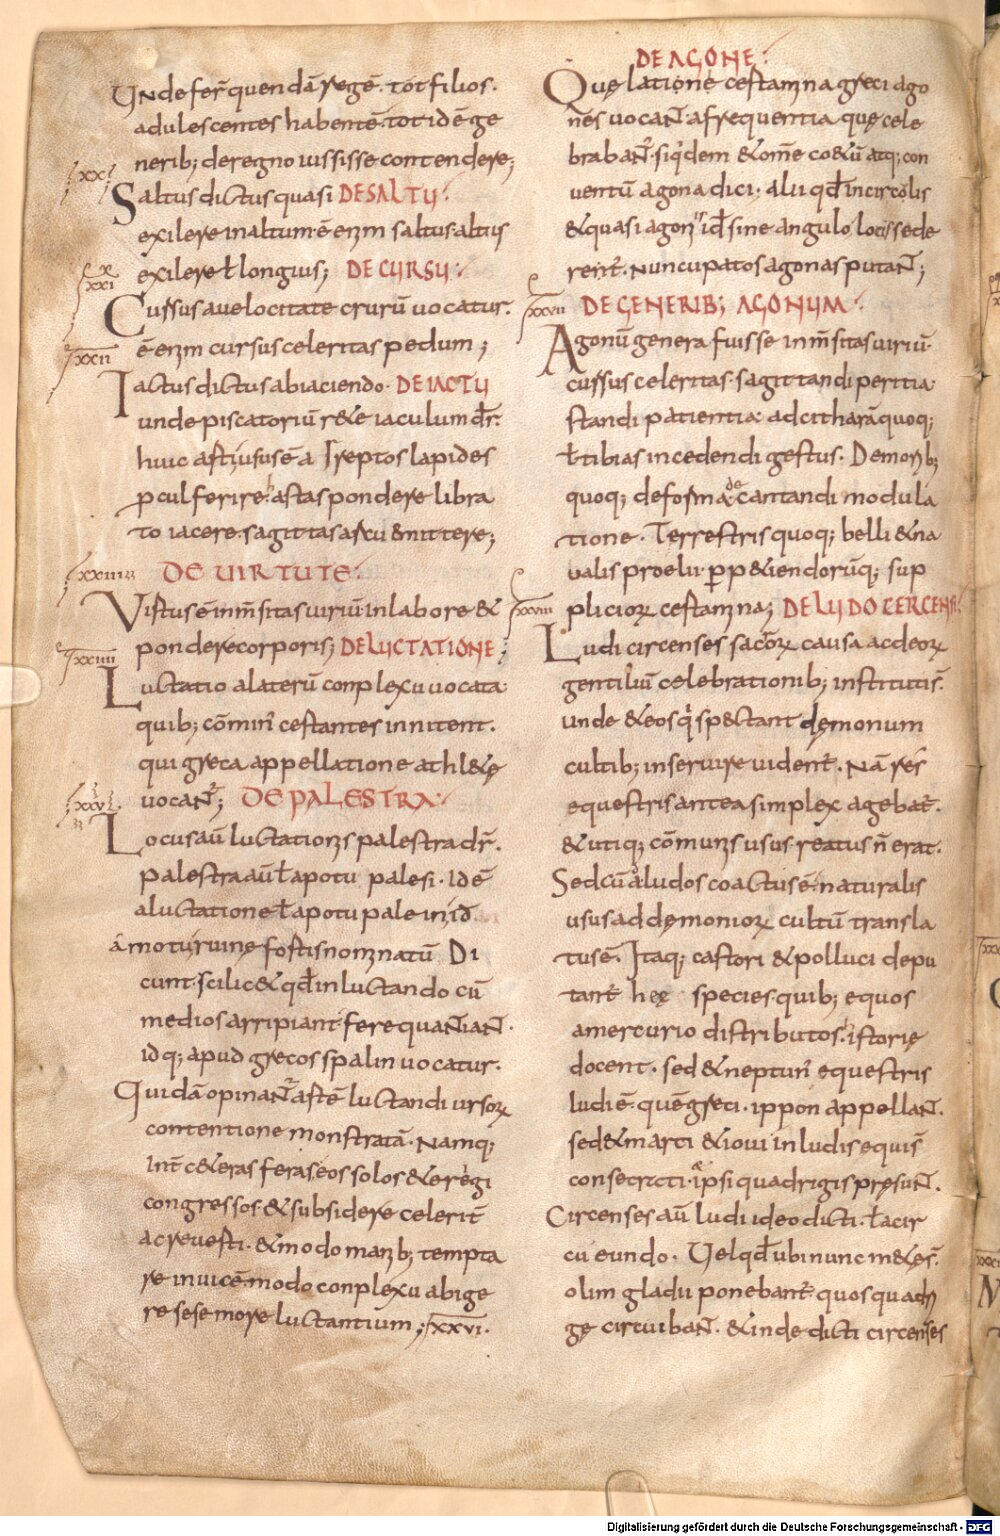 Unde fer̄ quendā regē. tot filios.
adulescentes habentē. totidē ge
nerib; de regno iussisse contendere;
xx
Saltus dictus quasi DE SALTU
exilere in altum. ē enim saltus altius
exilere ł longius; DE CURSU
xxi
Cursus a uelocitate crurū uocatur.
xxii
ē enim cursus celeritas pedum;
Iactus dictus ab iaciendo. DE IACTU
unde piscatoriū rete iaculum dr̄.
huic arti usus ē a
lapides
procul ferire. hastas pondere libra
to iacere. sagittas arcu emittere;
xxiii DE UIRTUTE
Virtus ē inm̄sitas uiriū in labore &
pondere corporis; DE LUCTATIONE;
xxiiii
Luctatio a laterū conplexu uocata
quib; cōmin̄ certantes innitent.
qui greca appellatione athl&ę
uocant̄; DE PALESTRA
xxv
Locus aū luctationis palestra dr̄.
Palestra aū ł apo tu palesi. id ē
a luctatione ł apo tu palein id.
a motu ruinę fortis nominatū Di
cunt. scilic& qđ in luctando cū
medios arripiant. fere quatiant.
idq; apud grecos spalin uocatur.
Quidā opinant̄ artē luctandi ursorum
contentione monstratā. Namq;
int̄ c&eras feras eos solos & erēgi
congressos. & subsidere celerit̄
ac reuerti. & modo manib; tempta
re inuicē. modo conplexu abige
re sese more luctantium; xxvi.
DE AGONE
Quę latione certamina greci ago
nes uocant̄ a frequentia quę cele
brabant̄. siqđem & om̄e coetū atq; con
uentū agona dici. alii qđ in circolis
& quasi agonia id sine angulo locis ede
rent̄. nuncupatos agonas putant̄;
xxvii DE GENERIB; AGONUM
Agonū genera fuisse inm̄sitas uiriū.
cursus celeritas. sagittandi peritia
standi patientia. ad citharā quoq;
ł tibias incedendi gestus. De morib;
quoq; de forma de cantandi modula
tione. Terrestris quoq; belli & na
ualis proelii. perp&iendorūq; sup
pliciorum certamina; DE LUDO CERCENSI
xxviii
Ludi circenses sacrorum causa ac deorum
gentiliū celebrationib; instituti s̄.
unde & eos qui sp&ctant dęmonum
cultib; inseruire uident̄. Nā res
equestris antea simplex agebat̄.
& utiq; cōmunis usus reatus n̄ erat.
Sed cū ad ludos coactus ē naturalis
usus ad dęmoniorum cultū transla
tus ē. Itaq; castori & polluci depu
tant̄ hęc species. quib; equos
a mercurio distributos. istorię
docent. sed & neptuni equestris
ludi ē. quē greci. ippon appellant̄.
sed & marti & ioui in ludis equi s̄
consecrati. & ipsi quadrigis pręsunt̄.
Circenses aū ludi ideo dicti. ł a cir
cū eundo. Uel qđ ubi nunc metę s̄.
olim gladii ponebant̄ quos quadri
gę circuibant̄. & inde dicti circenses
Digitalisierung gefördert durch die Deutsche Forschungsgemeinschaft - DFG